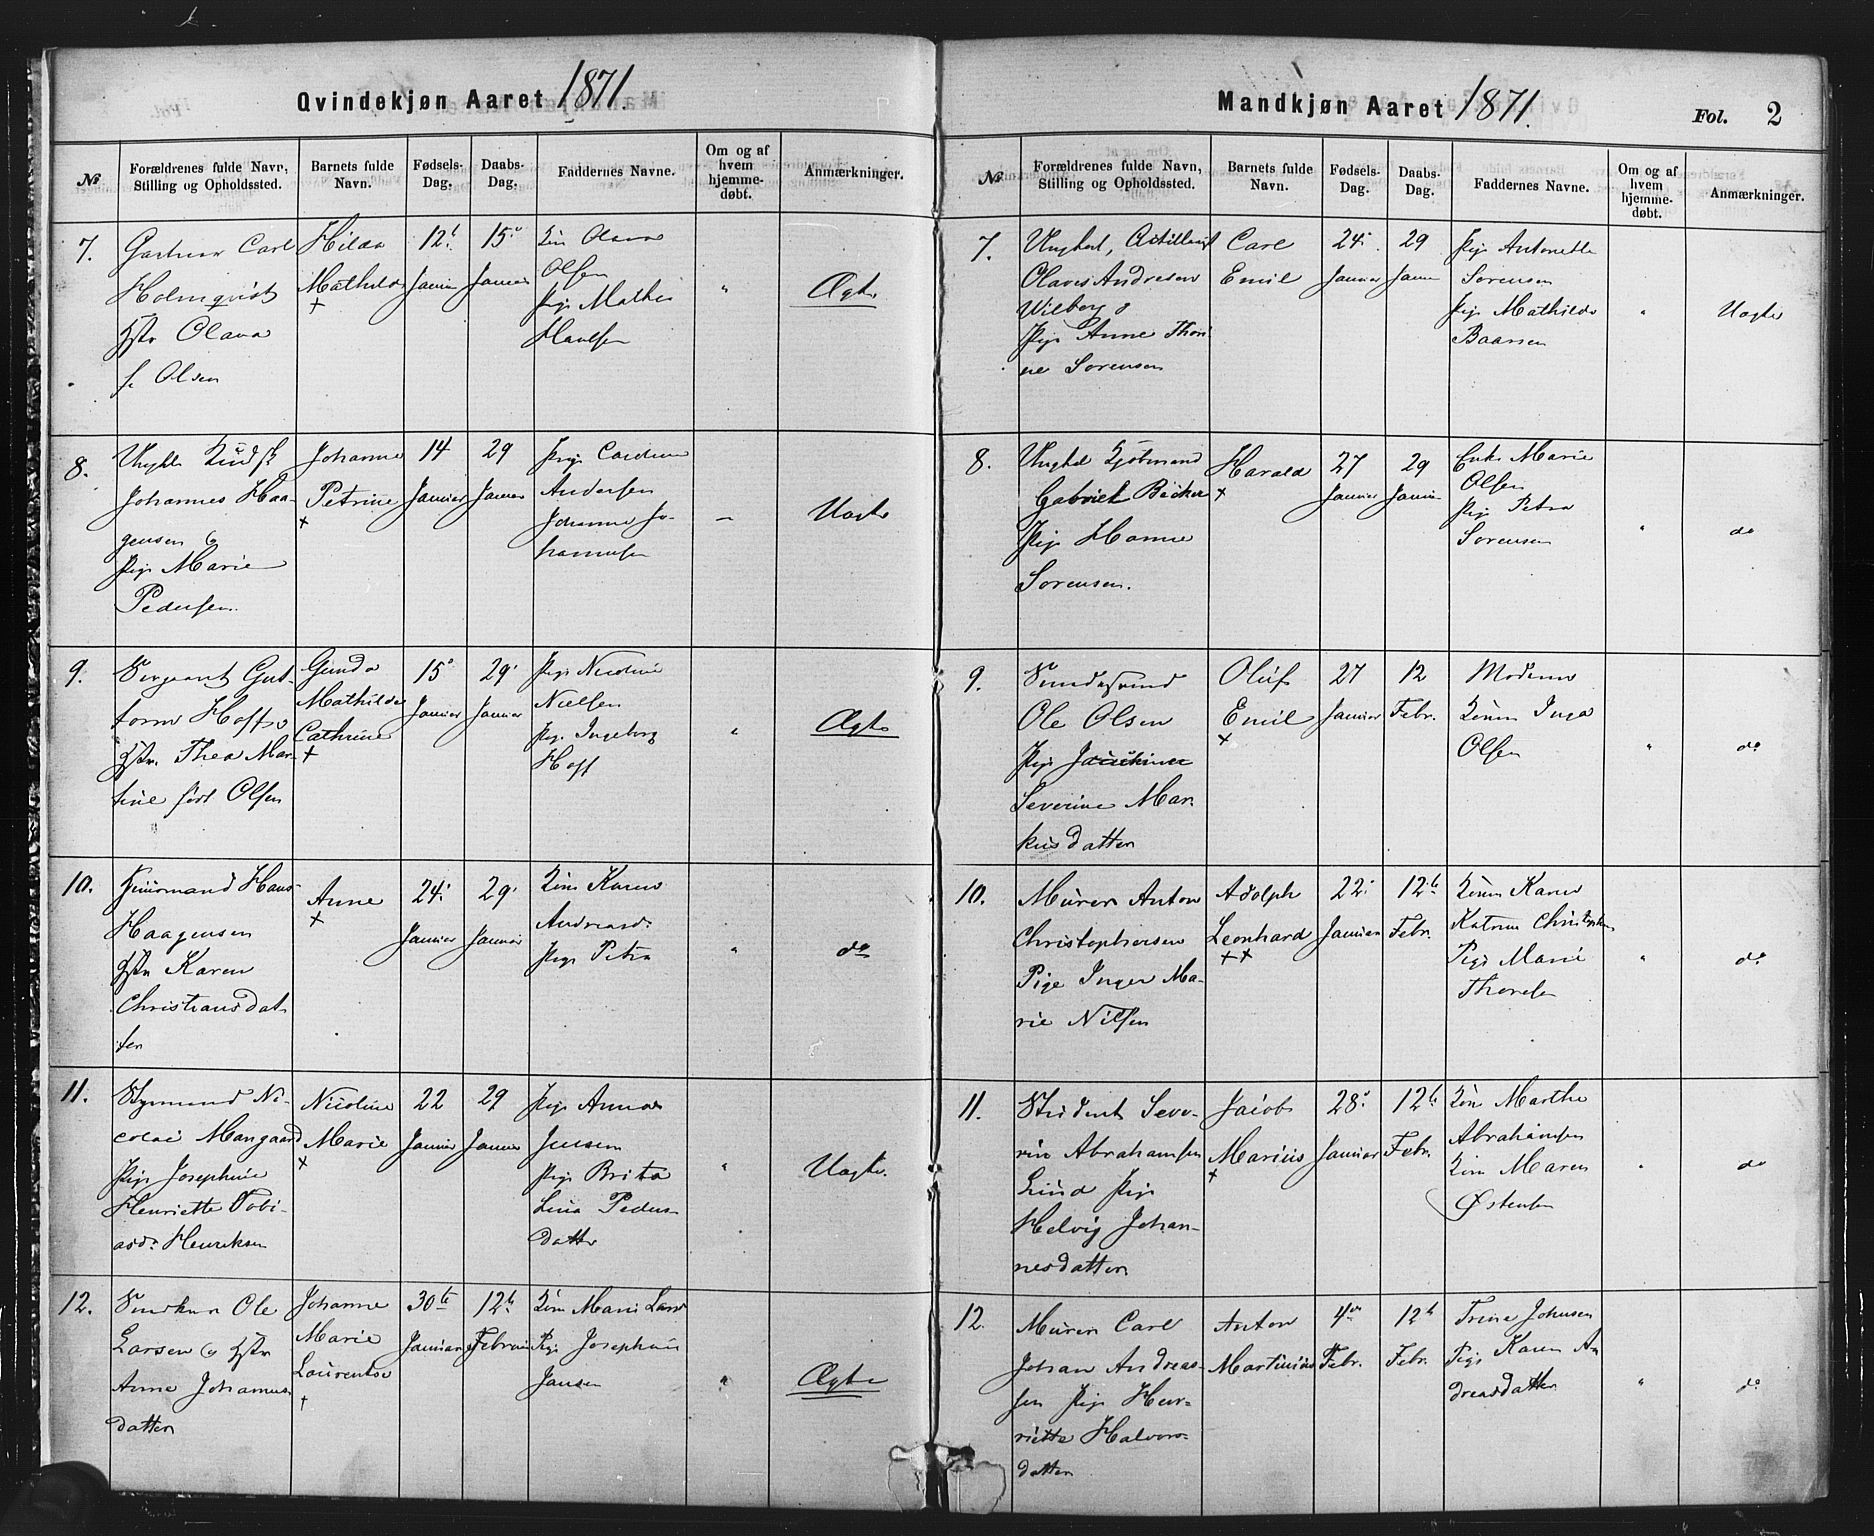 Qvindekjøn Aaret 1871.
№
Forældrenes fulde Navn, Stilling og Opholdssted.
Barnets fulde Navn.
Fødsels-Dag.
Daabs-Dag.
Faddernes Navne.
Om og af hvem hjemme-døbt.
Anmærkninger.
7.
Gartner Carl
Holmqvist
Hstr Olava
f. Olsen
Hilda
Mathilde
+
12t
Januar
15
Januar
Kone Olava
Olsen
Pige Mathea
"
Ægte
8.
Ungkl. Kudsk
Johannes Haa-
gensen og
Pige Marie
Pedersen.
Johanne
Petrine
+
14
Januar
29
Januar
Pige Caroline
Andersen
Johanne Jo-
hannesen
—
Uægte
9.
Sergeant Gut-
torm Hoff og
Hstr. Thea Mar-
tine født Olsen
Gunda
Mathilde
Cathrine
+
15
Januar
29
Januar
Pige Nicoline
Nielsen
Pige Ingeborg
Hoff
"
Ægte
10.
Hans
Haagensen
Hstr Karen
Christiansdat-
ter
Anne
+
24
Januar
29
Januar
Kone Karen
Andreasd.
Pige Petra
"
do
11.
Styrmand Ni-
colai Mangaard
Pige Josephine
Henriette Tobi-
asd. Henriksen
Nicoline
Marie
+
22
Januar
29
Januar
Pige Anna
Jensen
Pige Brita
Lina Peders-
datter
"
Uægte
12.
Snedker Ole
Larsen og Hstr
Anne Johannes-
datter
Johanne
Marie
Laurentse
+
30te
Januar
12te
Februar
Kone Maria
Pige Josephine
Jansen
"
Ægte
Mandkjøn Aaret 1871.
Fol. 2
№
Forældrenes fulde Navn, Stilling og Opholdssted.
Barnets fulde Navn.
Fødsels-Dag.
Daabs-Dag.
Faddernes Navne.
Om og af hvem hjemme-døbt.
Anmærkninger.
7.
Ungkarl, Artillerist
Olaves Andresen
Wilberg &
Pige Anne Thori-
ne Sorensen
Carl
Emil
24
Januar
29
Janu
Pige Antonette
Sorensen
Pige Mathilde
Baarsen
"
Uægte
8.
Ungkarl Kjøbmand
Gabriel Bäcker
Pige Hanne
Sorensen.
Harald
+
27
Januar
29
Januar
Enke Marie
Olsen
Pige Petra
Sorensen
"
do
9.
Ole Olsen
Pige
Severine Mar-
kusdatter
Oluf
Emil
+
27
Januar
12
Febr.
Moderen
Konen Inga
Olsen
"
do
10.
Murer Anton
Christophersen
Pige Inger Ma-
rie Nilsen
Adolph
Leonhard
++
22
Januar
12te
Febr.
Konen Karen
Katrine Christophersen
Pige Marie
Thoresen
"
do
11.
Student Seve-
rin Abrahamsen
Lund Pige
Helvig Johan-
nesdatter
Jacob
Marius
+
28
Januar
12te
Febr.
Kone Marthe
Abrahamsen
Kone Maren
Østensen
"
do
12.
Murer Carl
Johan Andreas-
sen Pige Hen-
riette Halvors-
datter
Anton
Martinius
4de
Febr.
12te
Febr.
Trine Johnsen
Pige Karen An
dreasdatter
"
do